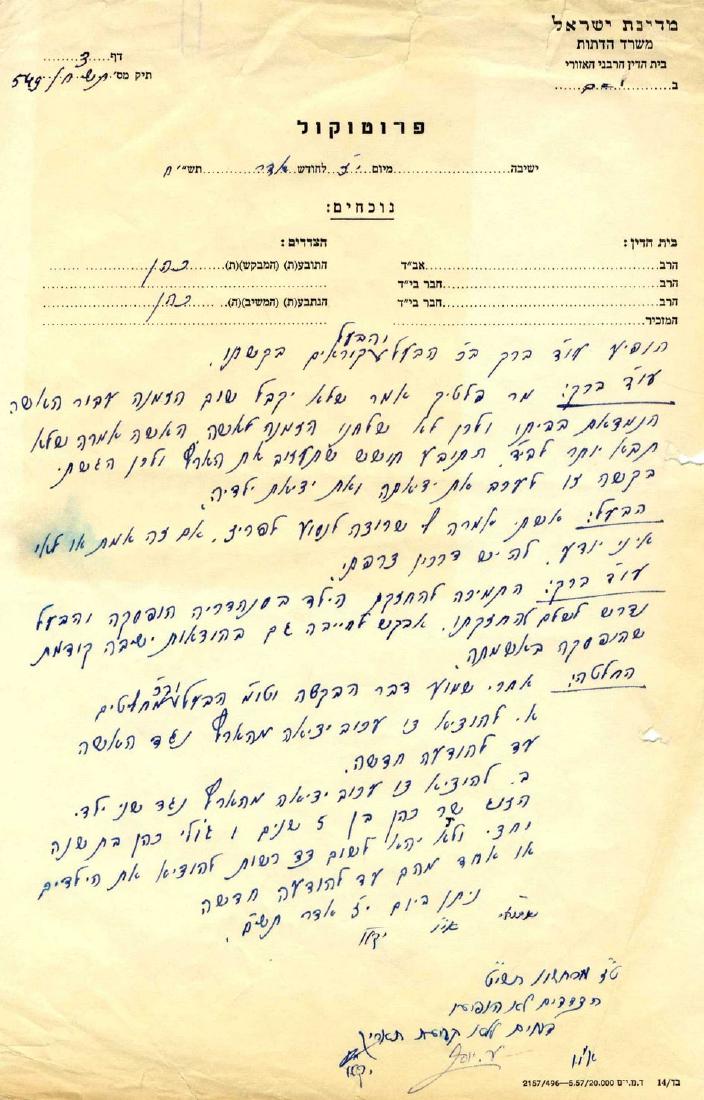 מדינת ישראל
משרד הדתות
בית הדין הרבני האזורי
ב
דף 3
תיק מס' 549 תשי"ח
פרוטוקול
ישיבה מיום י"ז לחודש אדר תשי"ח
נוכחים:
בית הדין: הצדדים:
הרב אב"ד התובע(ת) (המבקש)(ת) כהן
הרב חבר בי"ד
הרב חבר בי"ד הנתבע(ת) (המשיב)(ה) כהן
המזכיר
והבעל
הופיע עו"ד ברק ב"כ הבעל וקוראים בקשתו.
עו"ד ברק: מר פלטיק אמר שלא יקבל שום הזמנה עבור האשה
הנמצאת בביתו ולכן לא שלחנו הזמנה לאשה. האשה אמרה שלא
תבא יותר לביד. התובע חושש שתעזוב את הארץ ולכן הגשתי
בקשה זו לעכב את יציאתה ואת יציאת ילדיה.
הבעל: אשתי אמרה שרוצה לנסוע לפריז. אם זה אמת או לאו
איני יודע. לה יש דרכון צרפתי.
עו"ד ברק: התמיכה להחזקת הילד בסנהדריה הופסקה והבעל
נדרש לשלם להחזקתו. אבקש לחייבה גם בהוצאות ישיבה קודמת
שהופסקה באשמתה.
החלטה: אחרי שמוע דבר הבקשה וטו"מ הבעל וב"כ מחליטים
א. להוציא צו עכוב יציאה מהארץ נגד האשה
עד להודעה חדשה.
ב. להוציא צו עכוב יציאה מהארץ נגד שני ילדי
הזוג כהן בן 5 שנים ו ג'ולי כהן בת שנה
וחצי. ולא יהא לשום צד רשות להוציא את הילדים
או אחד מהם עד להודעה חדשה
ניתן ביום י"ז אדר תשי"ח.
ט"ז מרחשון תשי"ט
הצדדים לא הופיעו
דוחים ללא קביעת תאריך
בד/14 ד.מ.י"ם 2157/496—5.57/20.000